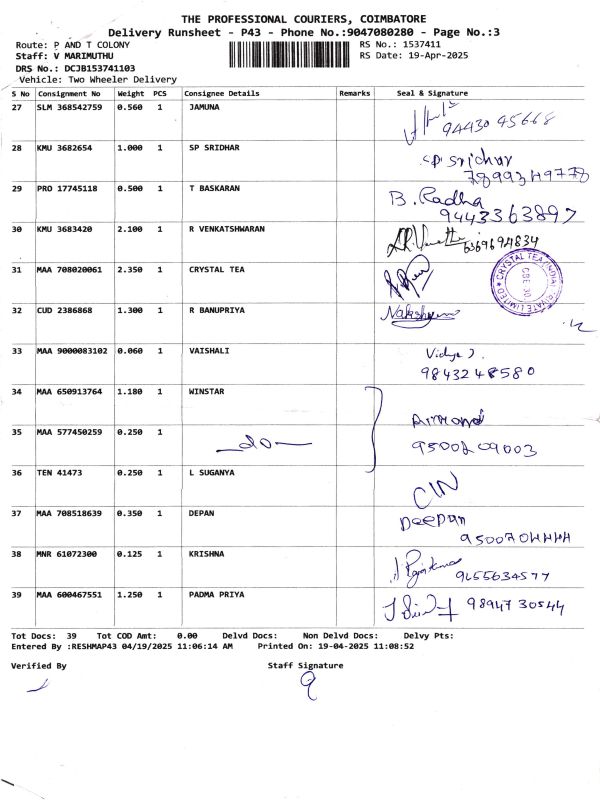 THE PROFESSIONAL COURIERS, COIMBATORE
Delivery Runsheet - P43 - Phone No.:9047080280 - Page No.:3
Route: P AND T COLONY RS No.: 1537411
Staff: V MARIMUTHU RS Date: 19-Apr-2025
DRS No.: DCJB153741103
Vehicle: Two Wheeler Delivery
S No Consignment No Weight PCS Consignee Details Remarks Seal & Signature
27 SLM 368542759 0.560 1 JAMUNA
9443045668
28 KMU 3682654 1.000 1 SP SRIDHAR SP Sridhar
7899349778
29 PRO 17745118 0.500 1 T BASKARAN B. Radha
9443363897
30 KMU 3683420 2.100 1 R VENKATSHWARAN
6369694834
31 MAA 708020061 2.350 1 CRYSTAL TEA
CRYSTAL TEA (INDIA) PRIVATE LIMITED
CBE 30
32 CUD 2386868 1.300 1 R BANUPRIYA
33 MAA 9000083102 0.060 1 VAISHALI Vidya J.
9843248580
34 MAA 650913764 1.180 1 WINSTAR
35 MAA 577450259 0.250 1 -do-
9500209003
36 TEN 41473 0.250 1 L SUGANYA CIN
37 MAA 708518639 0.350 1 DEPAN Deepan
9500704444
38 MNR 61072300 0.125 1 KRISHNA
9655634577
39 MAA 600467551 1.250 1 PADMA PRIYA 9894730544
Tot Docs: 39 Tot COD Amt: 0.00 Delvd Docs: Non Delvd Docs: Delvy Pts:
Entered By :RESHMAP43 04/19/2025 11:06:14 AM Printed On: 19-04-2025 11:08:52
Verified By Staff Signature